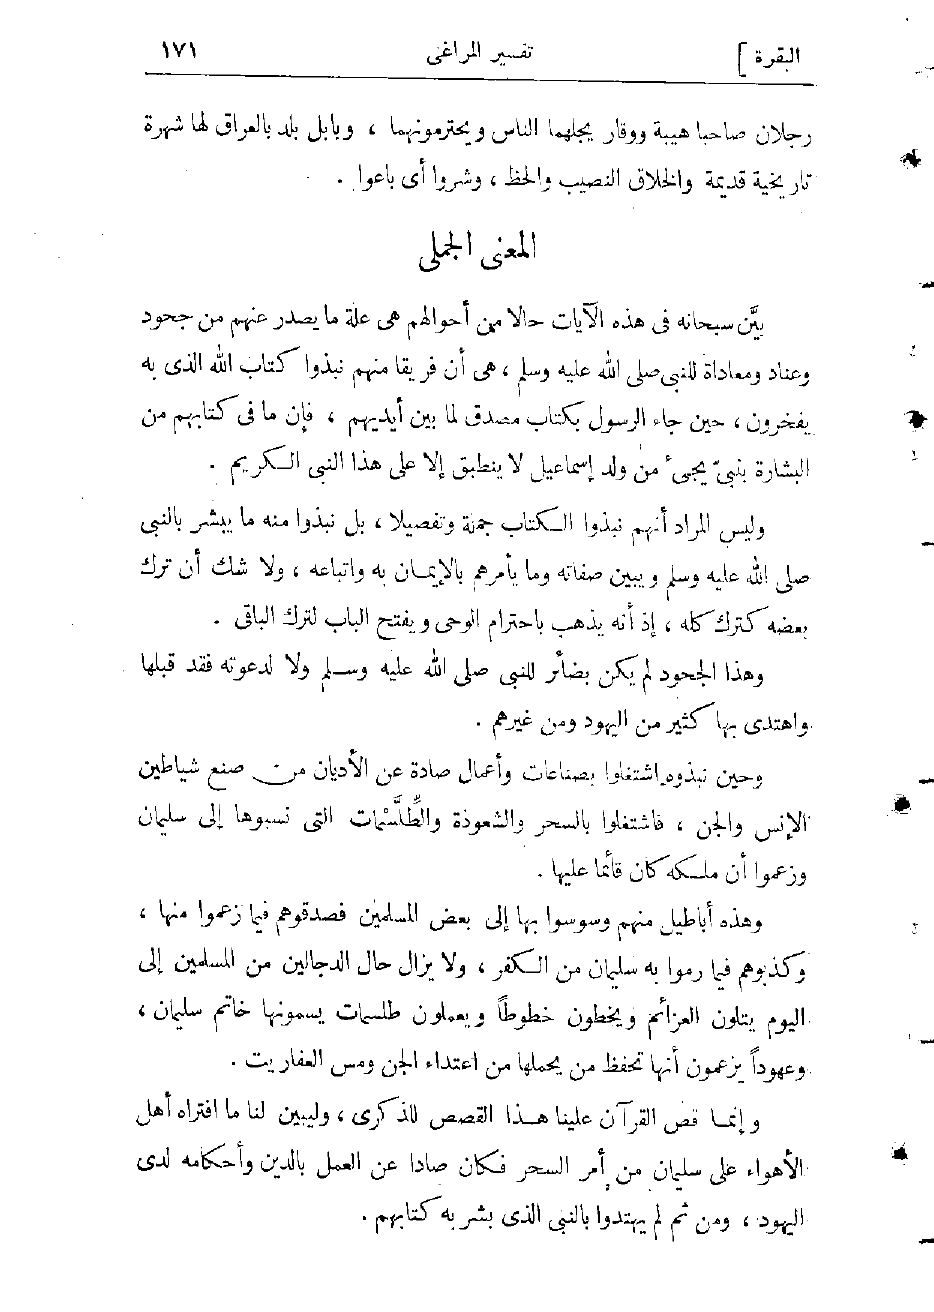 البقرة ] تفسير المراغى ١٧١
رجلان صاحبا هيبة ووقار يجلهما الناس ويحترمونهما ، وبابل بلد بالعراق لها شهرة
تاريخية قديمة والخلاق النصيب والحظ ، وشروا أى باعوا .
المعنى الجملى
بيَّن سبحانه فى هذه الآيات حالا من أحوالهم هى علة ما يصدر عنهم من جحود
وعناد ومعاداة للنبى صلى الله عليه وسلم ، هى أن فريقا منهم نبذوا كتاب الله الذى به
يفخرون ، حين جاء الرسول بكتاب مصدق لما بين أيديهم ، فإن ما فى كتابهم من
البشارة بنبىّ يجىء من ولد إسماعيل لا ينطبق إلا على هذا النبى الكريم .
وليس المراد أنهم نبذوا الكتاب جملة وتفصيلا ، بل نبذوا منه ما يبشر بالنبى
صلى الله عليه وسلم ويبين صفاته وما يأمرهم بالإيمان به واتباعه ، ولا شك أن ترك
بعضه كترك كله ، إذ أنه يذهب باحترام الوحى ويفتح الباب لترك الباقى .
وهذا الجحود لم يكن بضائر للنبى صلى الله عليه وسلم ولا لدعوته فقد قبلها
واهتدى بها كثير من اليهود ومن غيرهم .
وحين نبذوه اشتغلوا بصناعات وأعمال صادة عن الأديان من صنع شياطين
الإنس والجن ، فاشتغلوا بالسحر والشعوذة والطِّلَّسْمات التى نسبوها إلى سليمان
وزعموا أن ملكه كان قائما عليها .
وهذه أباطيل منهم وسوسوا بها إلى بعض المسلمين فصدقوهم فيما زعموا منها ،
وكذبوهم فيما رموا به سليمان من الكفر ، ولا يزال حال الدجالين من المسلمين إلى
اليوم يتلون العزائم ويخطون خطوطاً ويعملون طلسمات يسمونها خاتم سليمان ،
وعهوداً يزعمون أنها تحفظ من يحملها من اعتداء الجن ومس العفاريت .
وإنما قص القرآن علينا هذا القصص للذكرى ، وليبين لنا ما افتراه أهل
الأهواء على سليمان من أمر السحر فكان صادا عن العمل بالدين وأحكامه لدى
اليهود ، ومن ثم لم يهتدوا بالنبى الذى بشر به كتابهم .